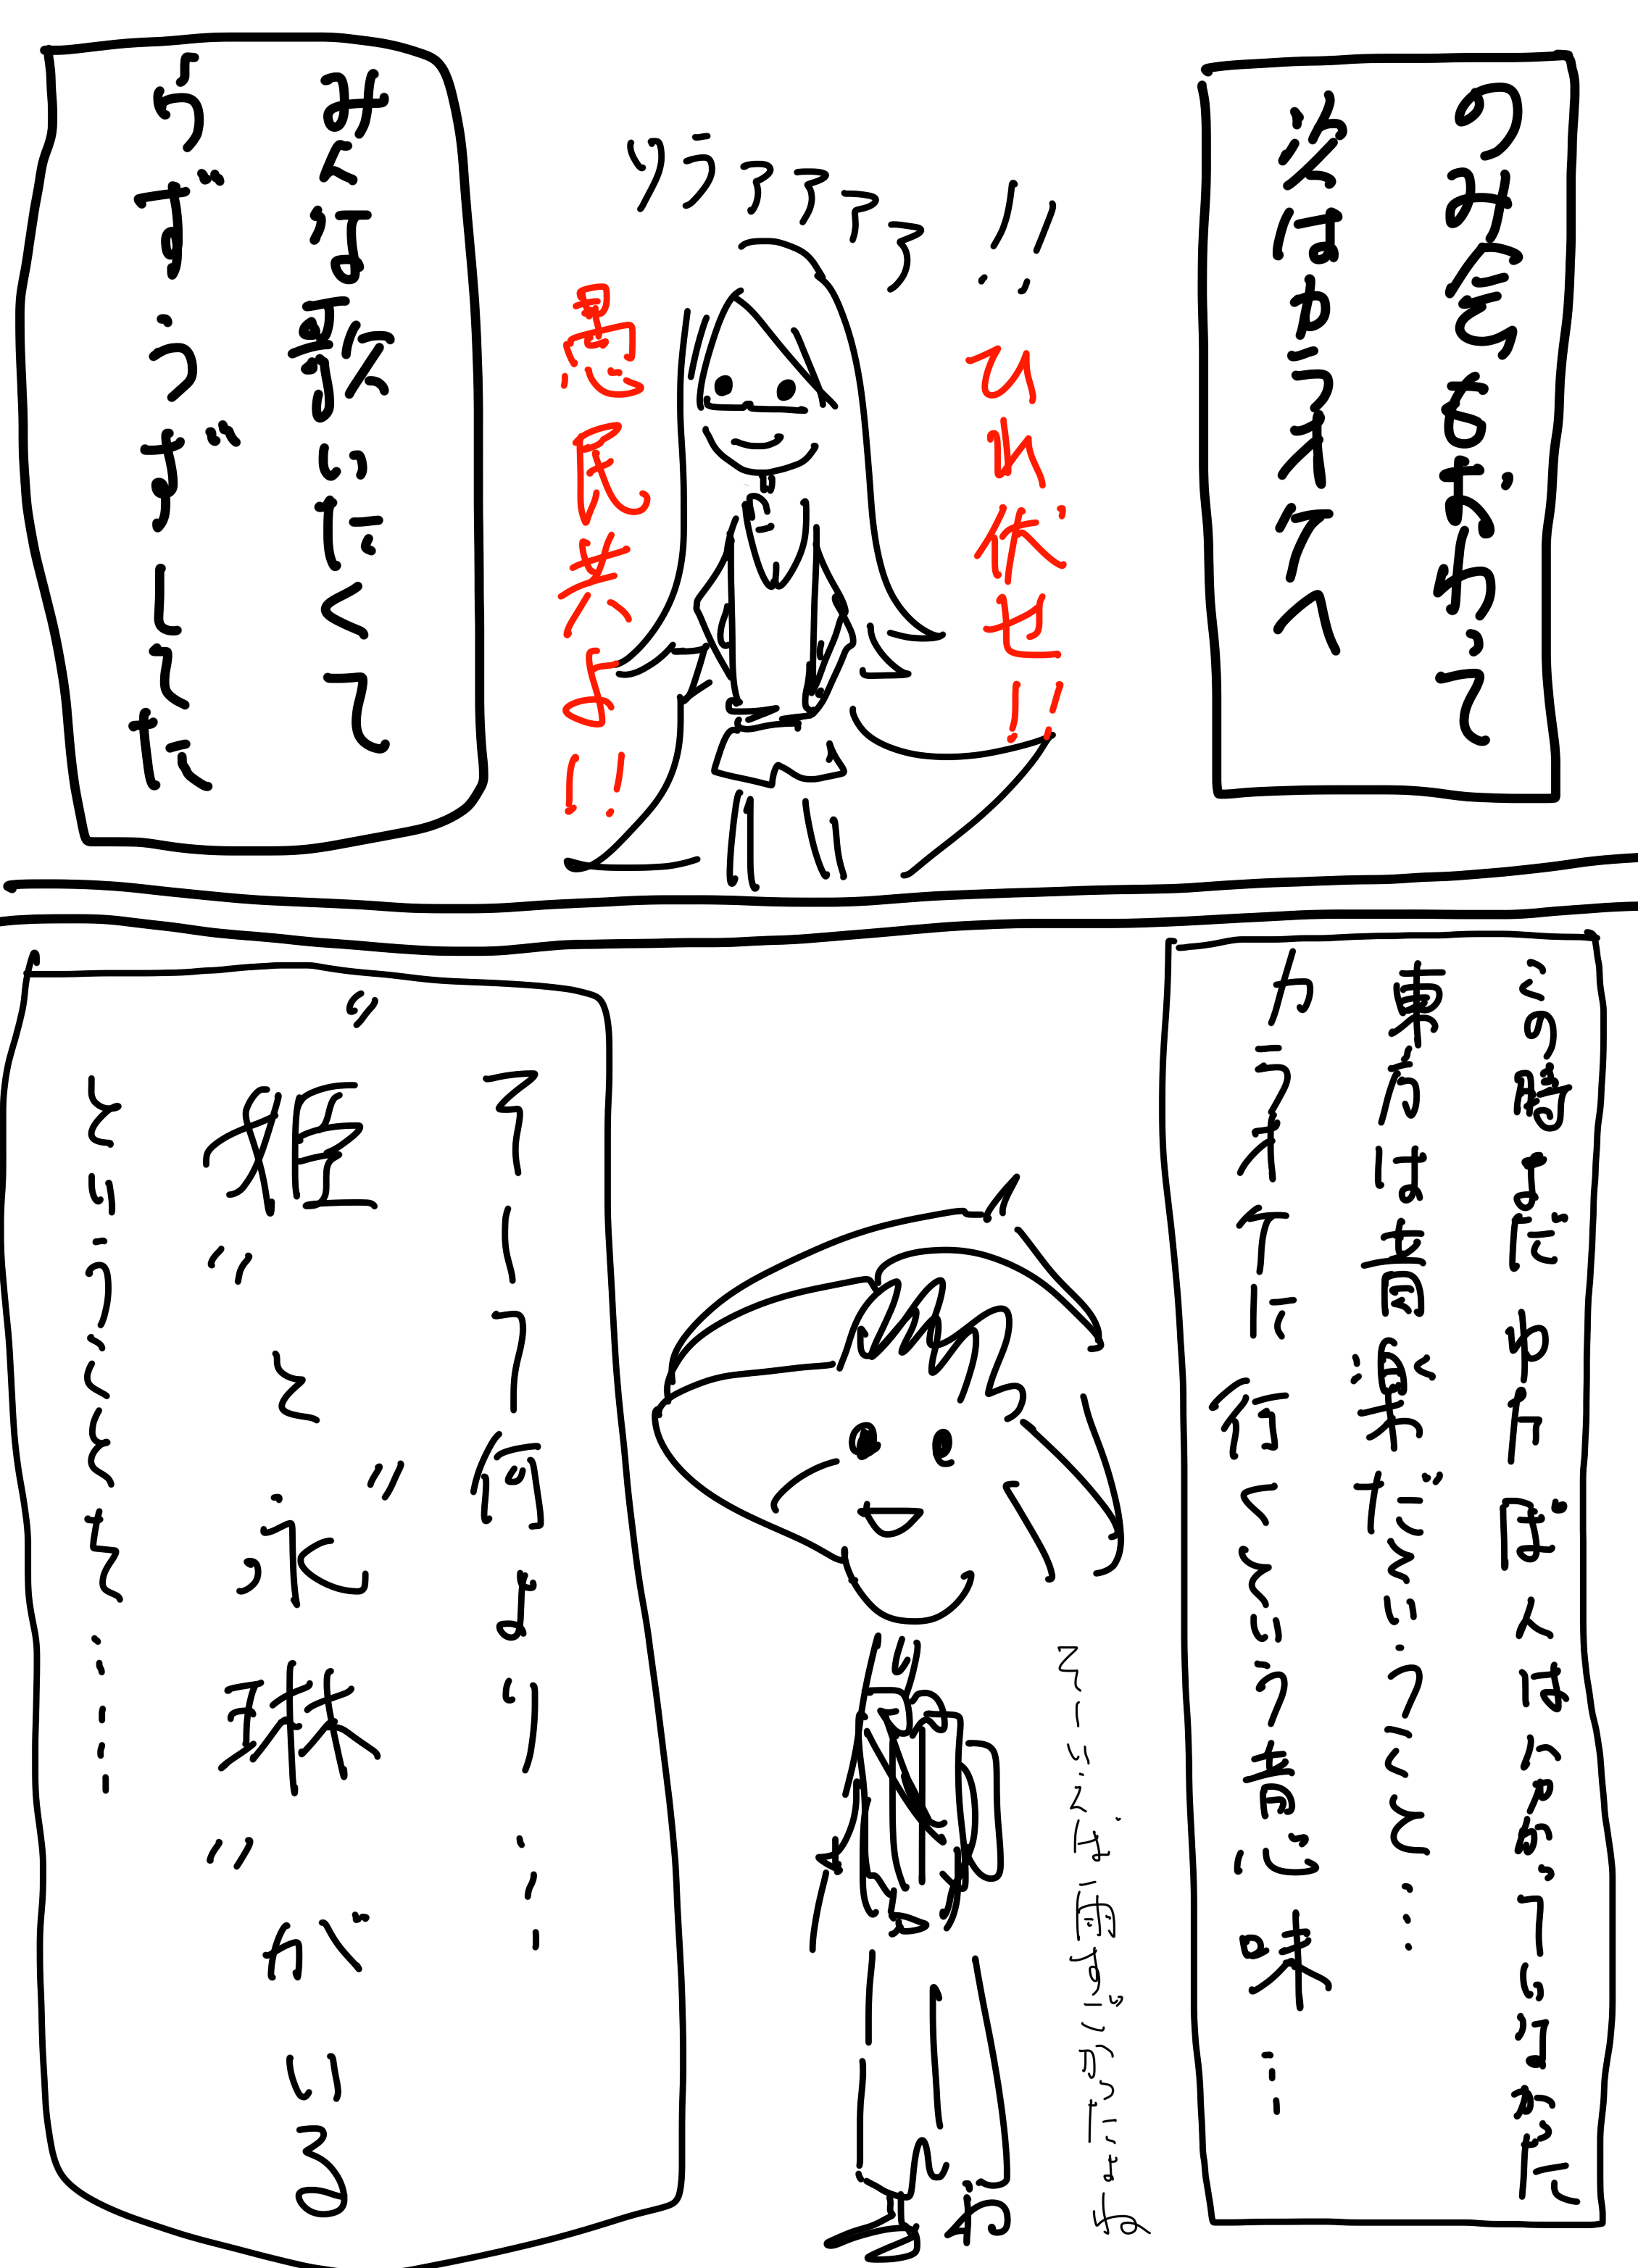 のみ会もおわって
次はカラオケへ
ソラァァァァ!!
ひれ伏せ!!
愚民共よ!!
みんな歌いにくくて
うずうずしてた
この時まだわケば人はへべかっていなかった
東方は音楽だということ…
カラオケに行くという意味…
そーいえば雨ずいかないよね
そして何より…
“姫”と“永琳”がいる
ということを……